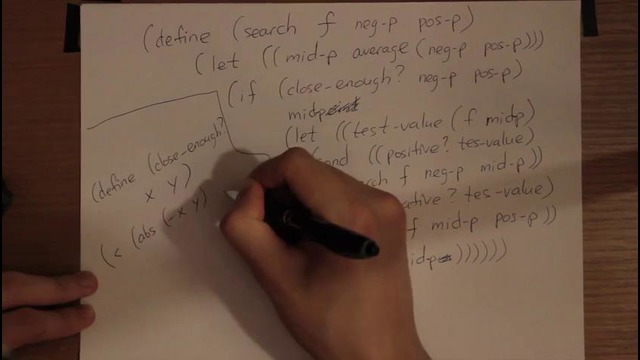 (define (search f neg-p pos-p)
(let ((mid-p average (neg-p pos-p)))
(if (close-enough? neg-p pos-p)
midp
(let ((test-value (f midp)
((positive? tes-value)
f neg-p mid-p))
? tes-value)
f mid-p pos-p))
))))))
(define (close-enough?
x y)
(< (abs (-x y)